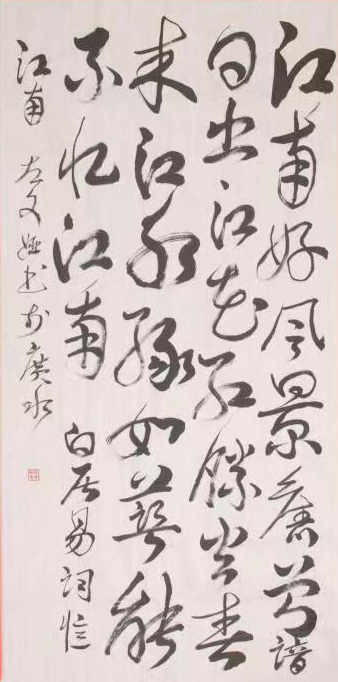 江南好风景舊曾諳
日出江花红勝火春
来江水绿如藍能
不忆江南 白居易詞忆
江南 左文书於廣水